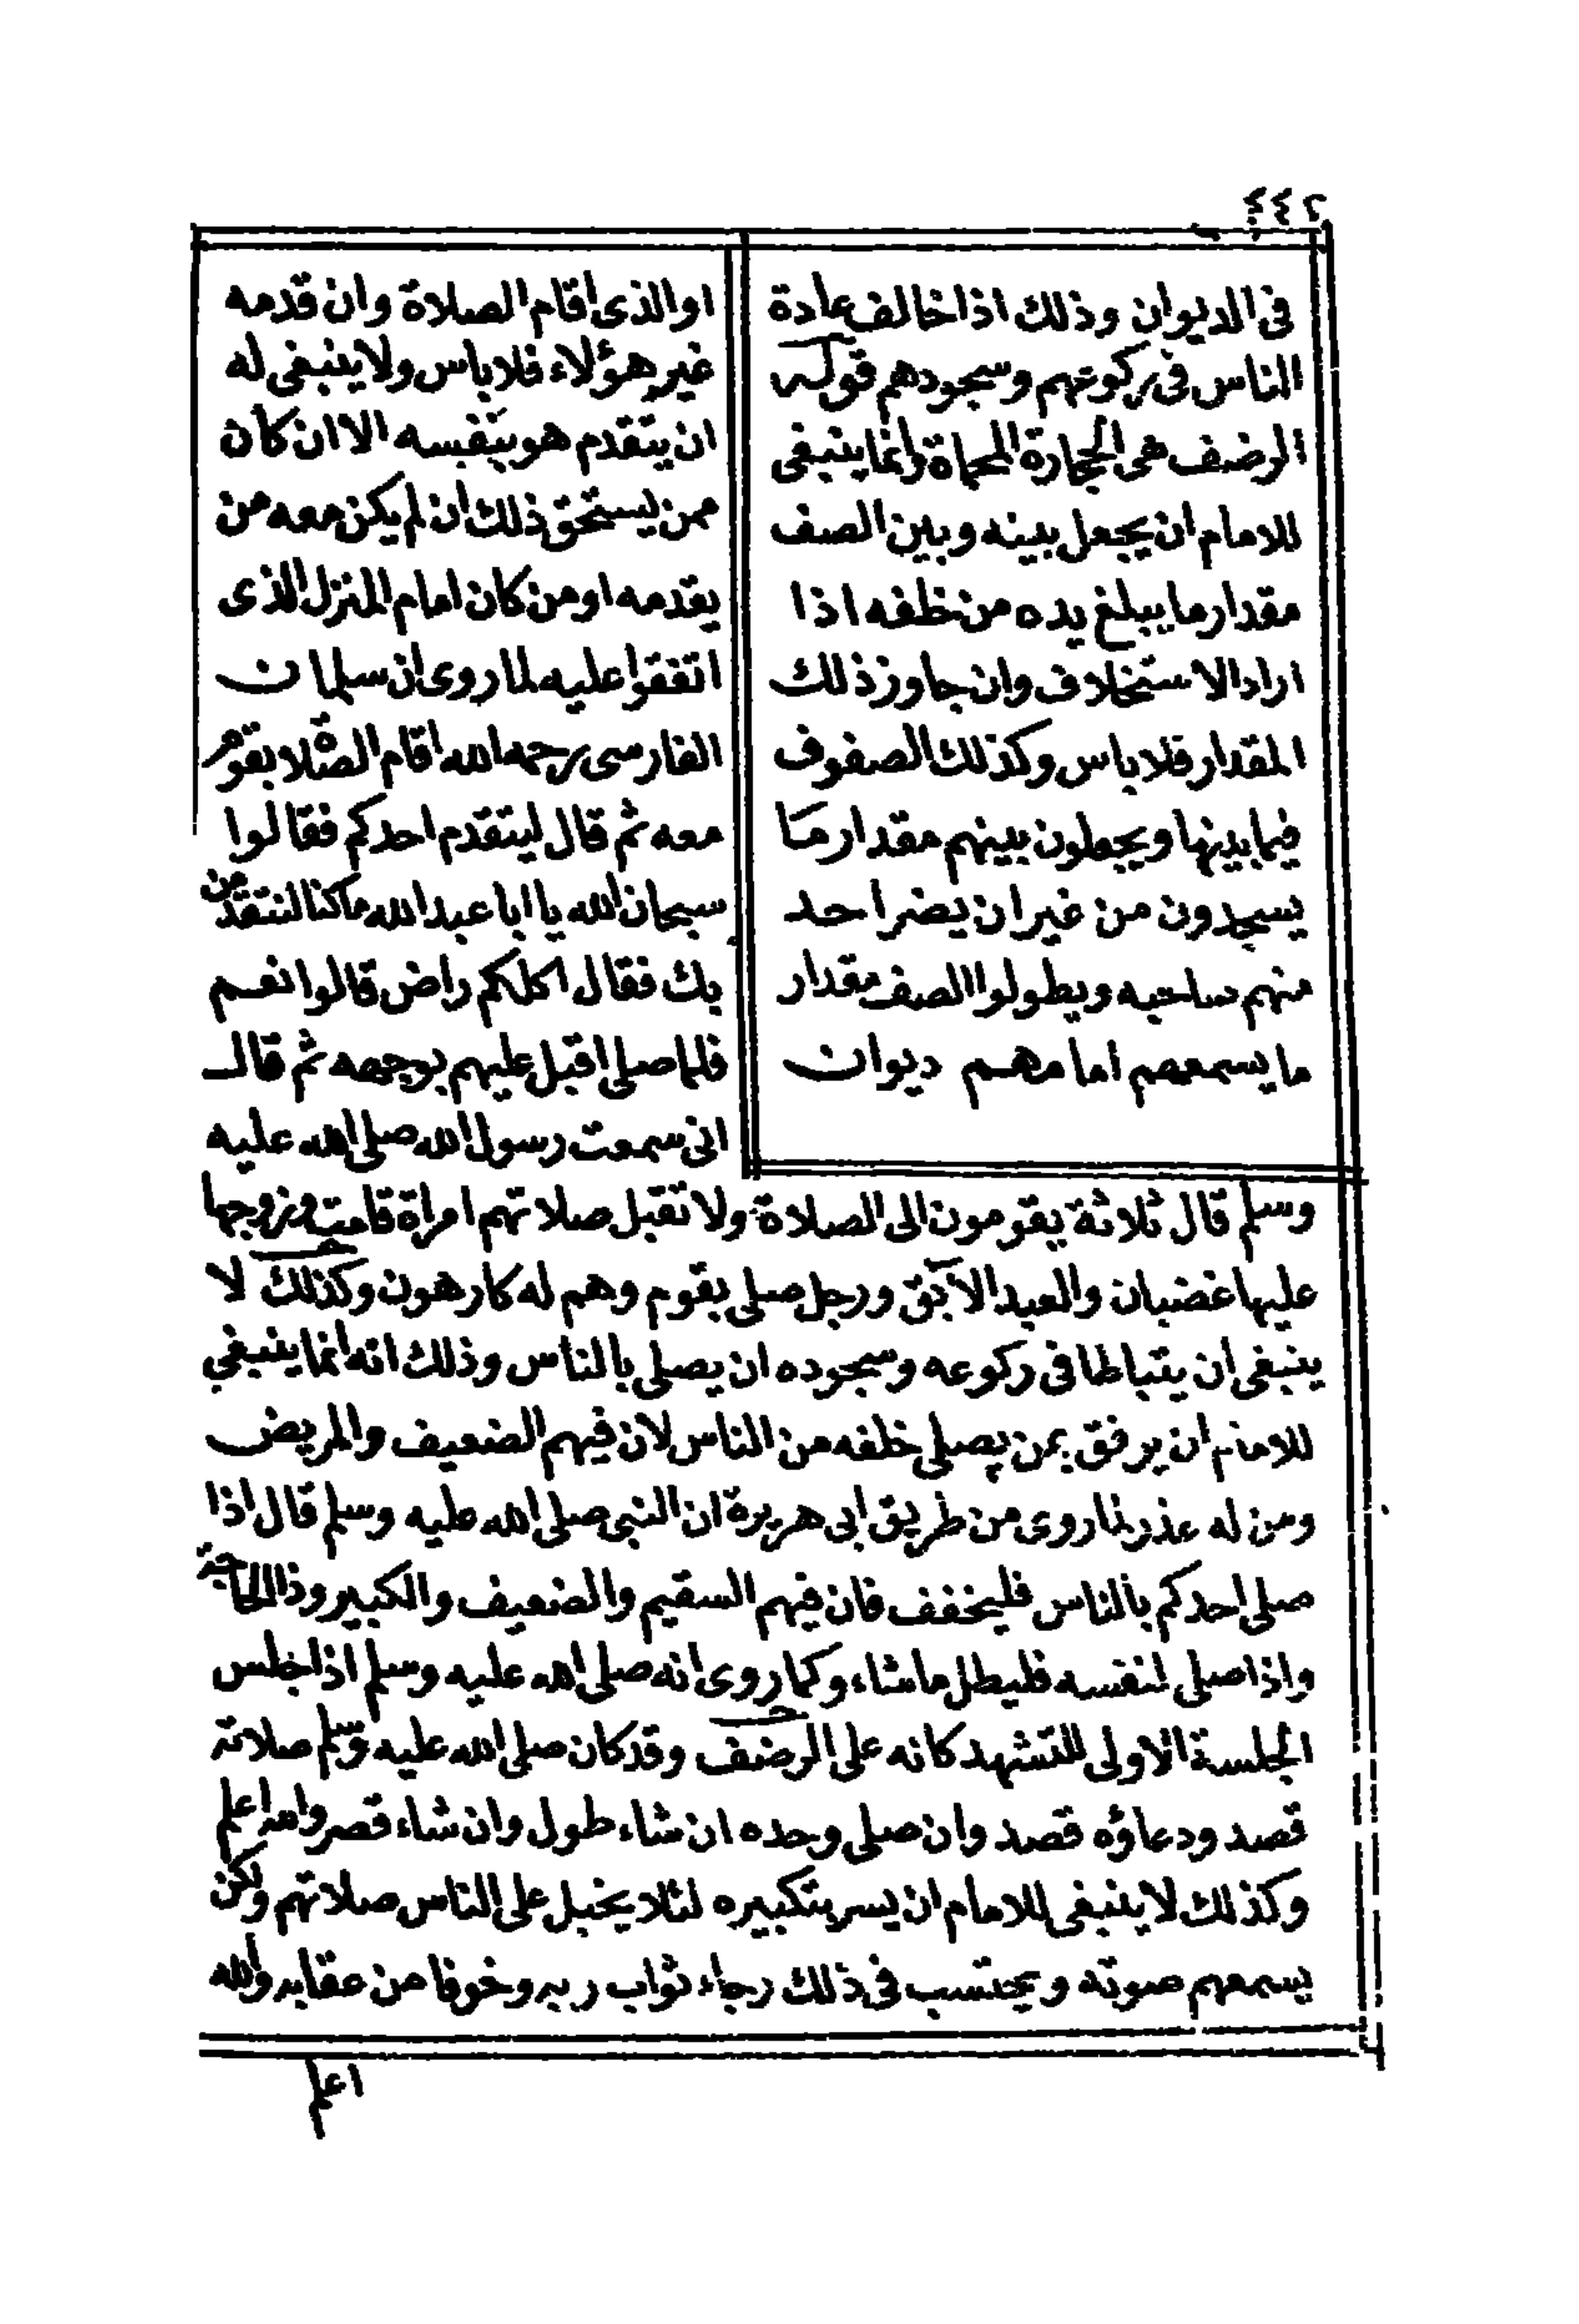 ٤٤٢
فى الديوان وذلك اذا خالف عادة
الناس فى ركوعهم وسجودهم قوله
الرضف هى الحجارة المحماة وانما ينبغى
للامام ان يجعل بينه وبين الصف
مقدار ما يبلغ يده من خلفه اذا
اراد الاستخلاف وان جاوز ذلك
المقدار فلا باس وكذلك الصفوف
فيما بينها ويجعلون بينهم مقدار ما
يسجدون من غير ان يضر احد
منهم صاحبه ويطولوا الصف مقدار
ما يسمعهم امامهم ديوان
او الذى اقام الصلاة وان قدمه
غير هؤلاء فلا باس ولا ينبغى له
ان يتقدم هو بنفسه الا ان كان
ممن يستحق ذلك ان لم يكن معه من
يقدمه او من كان امام المنزل الذى
اتفقوا عليه لما روى ان سلمان
الفارسى رحمه الله اقام الصلاة بقوم
معه ثم قال ليتقدم احدكم فقالوا
سبحان الله يا ابا عبد الله ما كنا لنتقدمن
بك فقال اكلكم راض قالوا نعم
فلما صلى اقبل عليهم بوجهه ثم قال
انى سمعت رسول الله صلى الله عليه
وسلم قال ثلاثة يقومون الى الصلاة ولا تقبل صلاتهم امراة قامت وزوجها
عليها غضبان والعبد الآبق ورجل صلى بقوم وهم له كارهون وكذلك لا
ينبغى ان يتباطا فى ركوعه وسجوده ان يصلى بالناس وذلك انه انما ينبغى
للامام ان يرفق بمن يصلى خلفه من الناس لان فيهم الضعيف والمريض
ومن له عذر لما روى من طريق ابى هريرة ان النبى صلى الله عليه وسلم قال اذا
صلى احدكم بالناس فليخفف فان فيهم السقيم والضعيف والكبير وذا الحاجة
واذا صلى لنفسه فليطل ما شاء وكما روى انه صلى الله عليه وسلم اذا جلس
الجلسة الاولى للتشهد كانه على الرضف وقد كان صلى الله عليه وسلم صلاته
قصد ودعاؤه قصد وان صلى وحده ان شاء طول وان شاء قصر والله اعلم
وكذلك لا ينبغى للامام ان يسر بتكبيره لئلا يخبل على الناس صلاتهم ولكن
يسمعهم صوته ويحتسب فى ذلك رجاء ثواب ربه وخوفا من عقابه والله
اعلم